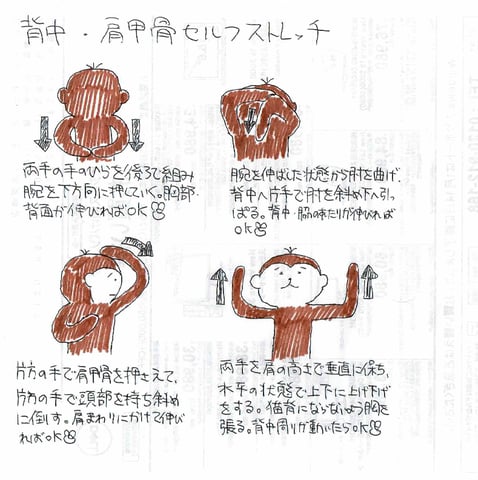 背中・肩甲骨セルフストレッチ
両手の手のひらを後ろで組み
腕を下方向に押していく。胸部・
背面が伸びればOK
腕を伸ばした状態から肘を曲げ、
背中へ片手で肘を斜め下へ引っ
ぱる。背中・脇のあたりが伸びれば
OK
片方の手で肩甲骨を押さえて、
片方の手で頭部を持ち斜め
に倒す。肩まわりにかけて伸び
ればOK
両手を肩の高さで垂直に保ち、
水平の状態で上下に上げ下げ
をする。猫背にならないよう胸を
張る。背中周りが動いたらOK